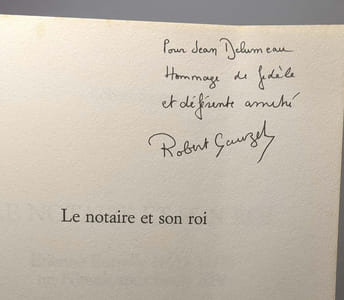 Pour Jean Delumeau
Hommage de fidèle
et déférente amitié
Robert Sauzet
Le notaire et son roi